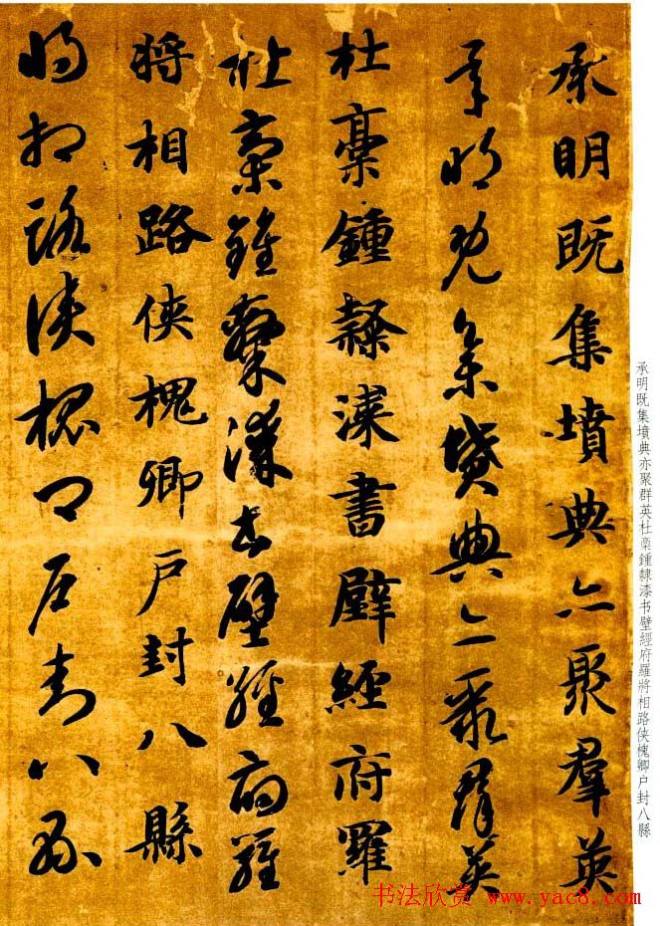 承明既集墳典亦聚群英
承明既集墳典亦聚群英
杜稾鍾隸漆書壁經府羅
杜稾鍾隸漆書壁經府羅
將相路俠槐卿戶封八縣
將相路俠槐卿戶封八縣
承明既集墳典亦聚群英杜稾鍾隸漆书壁經府羅將相路侠槐卿户封八縣
书法欣赏 www.yac8.com